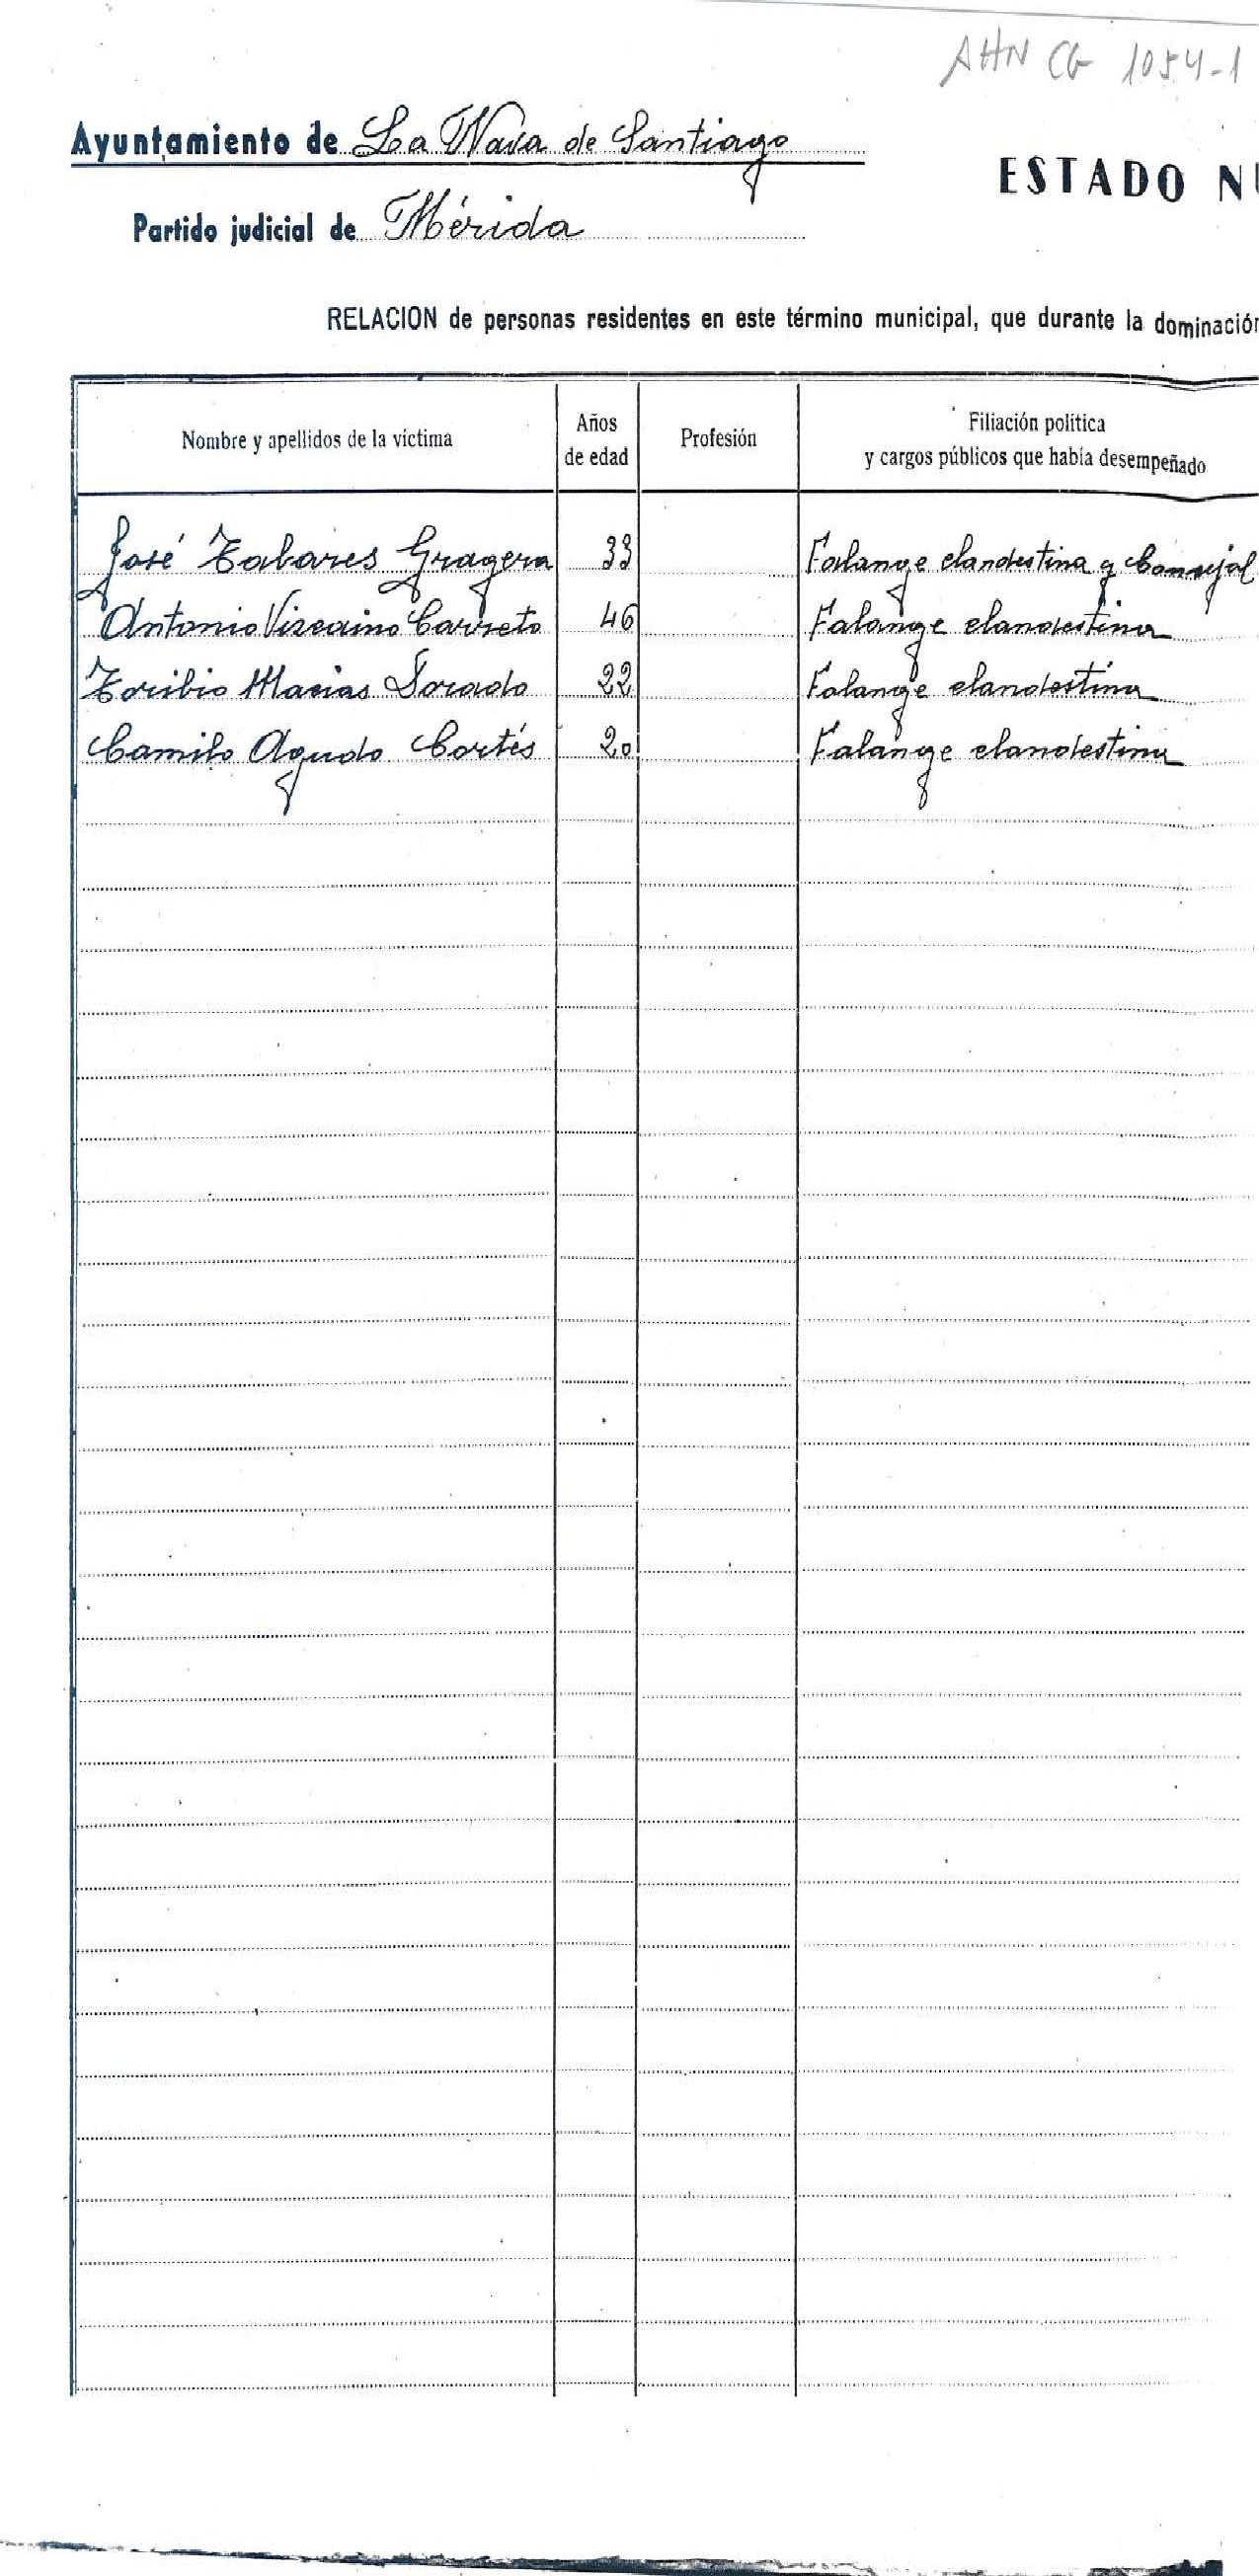 AHN CG 1054-1
Ayuntamiento de La Nava de Santiago
ESTADO NU
Partido judicial de Mérida
RELACION de personas residentes en este término municipal, que durante la dominación
Nombre y apellidos de la víctima
Años de edad
Profesión
Filiación política
y cargos públicos que había desempeñado
José Tabares Gragera 33 Falange clandestina y Consejal
Antonio Vizcaino Carreto 46 Falange clandestina
Toribio Macias Dorado 22 Falange clandestina
Camilo Agudo Cortés 20 Falange clandestina